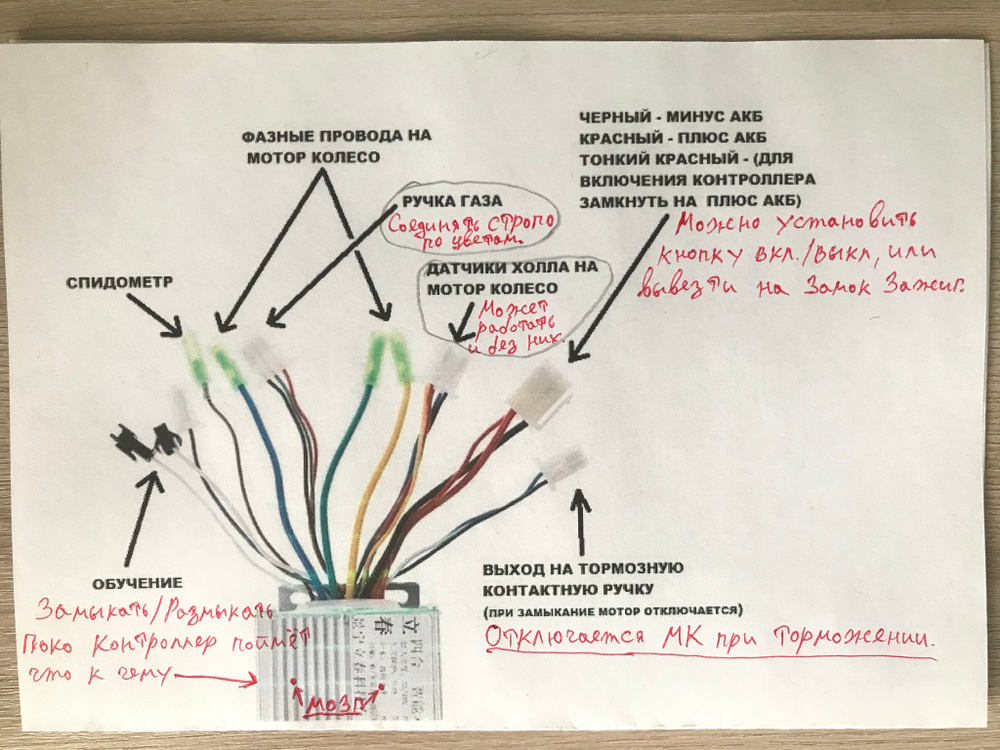 ФАЗНЫЕ ПРОВОДА НА
МОТОР КОЛЕСО
ЧЕРНЫЙ - МИНУС АКБ
КРАСНЫЙ - ПЛЮС АКБ
ТОНКИЙ КРАСНЫЙ - (ДЛЯ
ВКЛЮЧЕНИЯ КОНТРОЛЛЕРА
ЗАМКНУТЬ НА ПЛЮС АКБ)
Можно установить
кнопку вкл./выкл, или
вывезти на Замок Зажиг.
РУЧКА ГАЗА
Соединять строго
по цветам.
ДАТЧИКИ ХОЛЛА НА
МОТОР КОЛЕСО
Может
работать
и без них.
СПИДОМЕТР
ОБУЧЕНИЕ
Замыкать/Размыкать
Пока Контроллер поймёт
что к чему
ВЫХОД НА ТОРМОЗНУЮ
КОНТАКТНУЮ РУЧКУ
(ПРИ ЗАМЫКАНИЕ МОТОР ОТКЛЮЧАЕТСЯ)
Отключается МК при Торможении.
立春
四合
МОЗГ